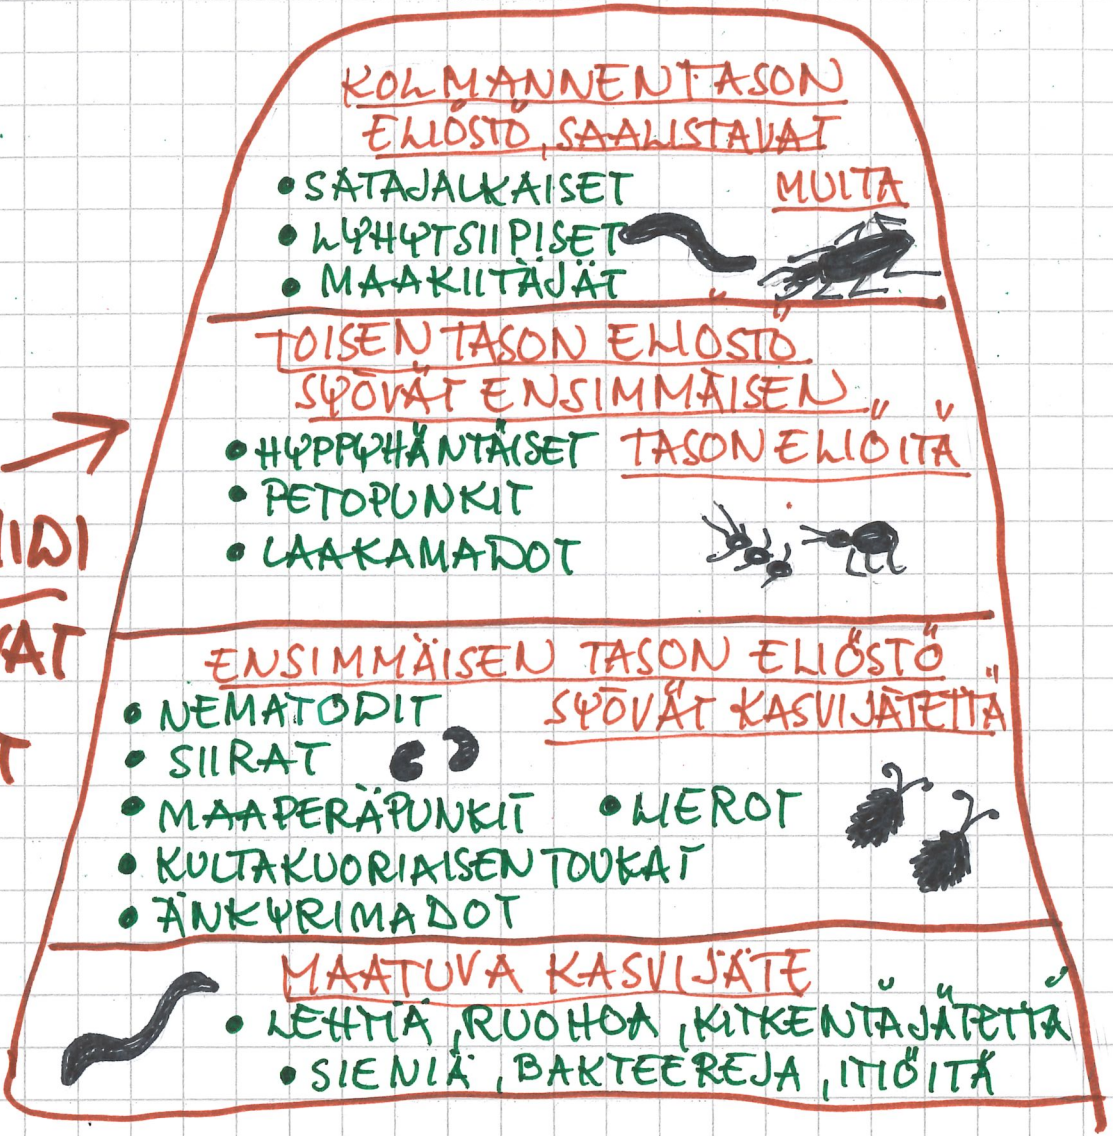 KOLMANNEN TASON
ELIÖSTÖ, SAALISTAVAT
MUITA
• SATAJALKAISET
• LYHYTSIIPISET
• MAAKIITÄJÄT
TOISEN TASON ELIÖSTÖ
SYÖVÄT ENSIMMÄISEN
TASON ELIÖITÄ
• HYPPYHÄNTÄISET
• PETOPUNKIT
• LAAKAMADOT
ENSIMMÄISEN TASON ELIÖSTÖ
SYÖVÄT KASVIJÄTETTÄ
• NEMATODIT
• SIIRAT
• MAAPERÄPUNKIT • LIEROT
• KULTAKUORIAISEN TOUKAT
• ÄNKYRIMADOT
MAATUVA KASVIJÄTE
• LEHTIÄ, RUOHOA, KITKENTÄJÄTETTÄ
• SIENIÄ, BAKTEEREJA, ITIÖITÄ